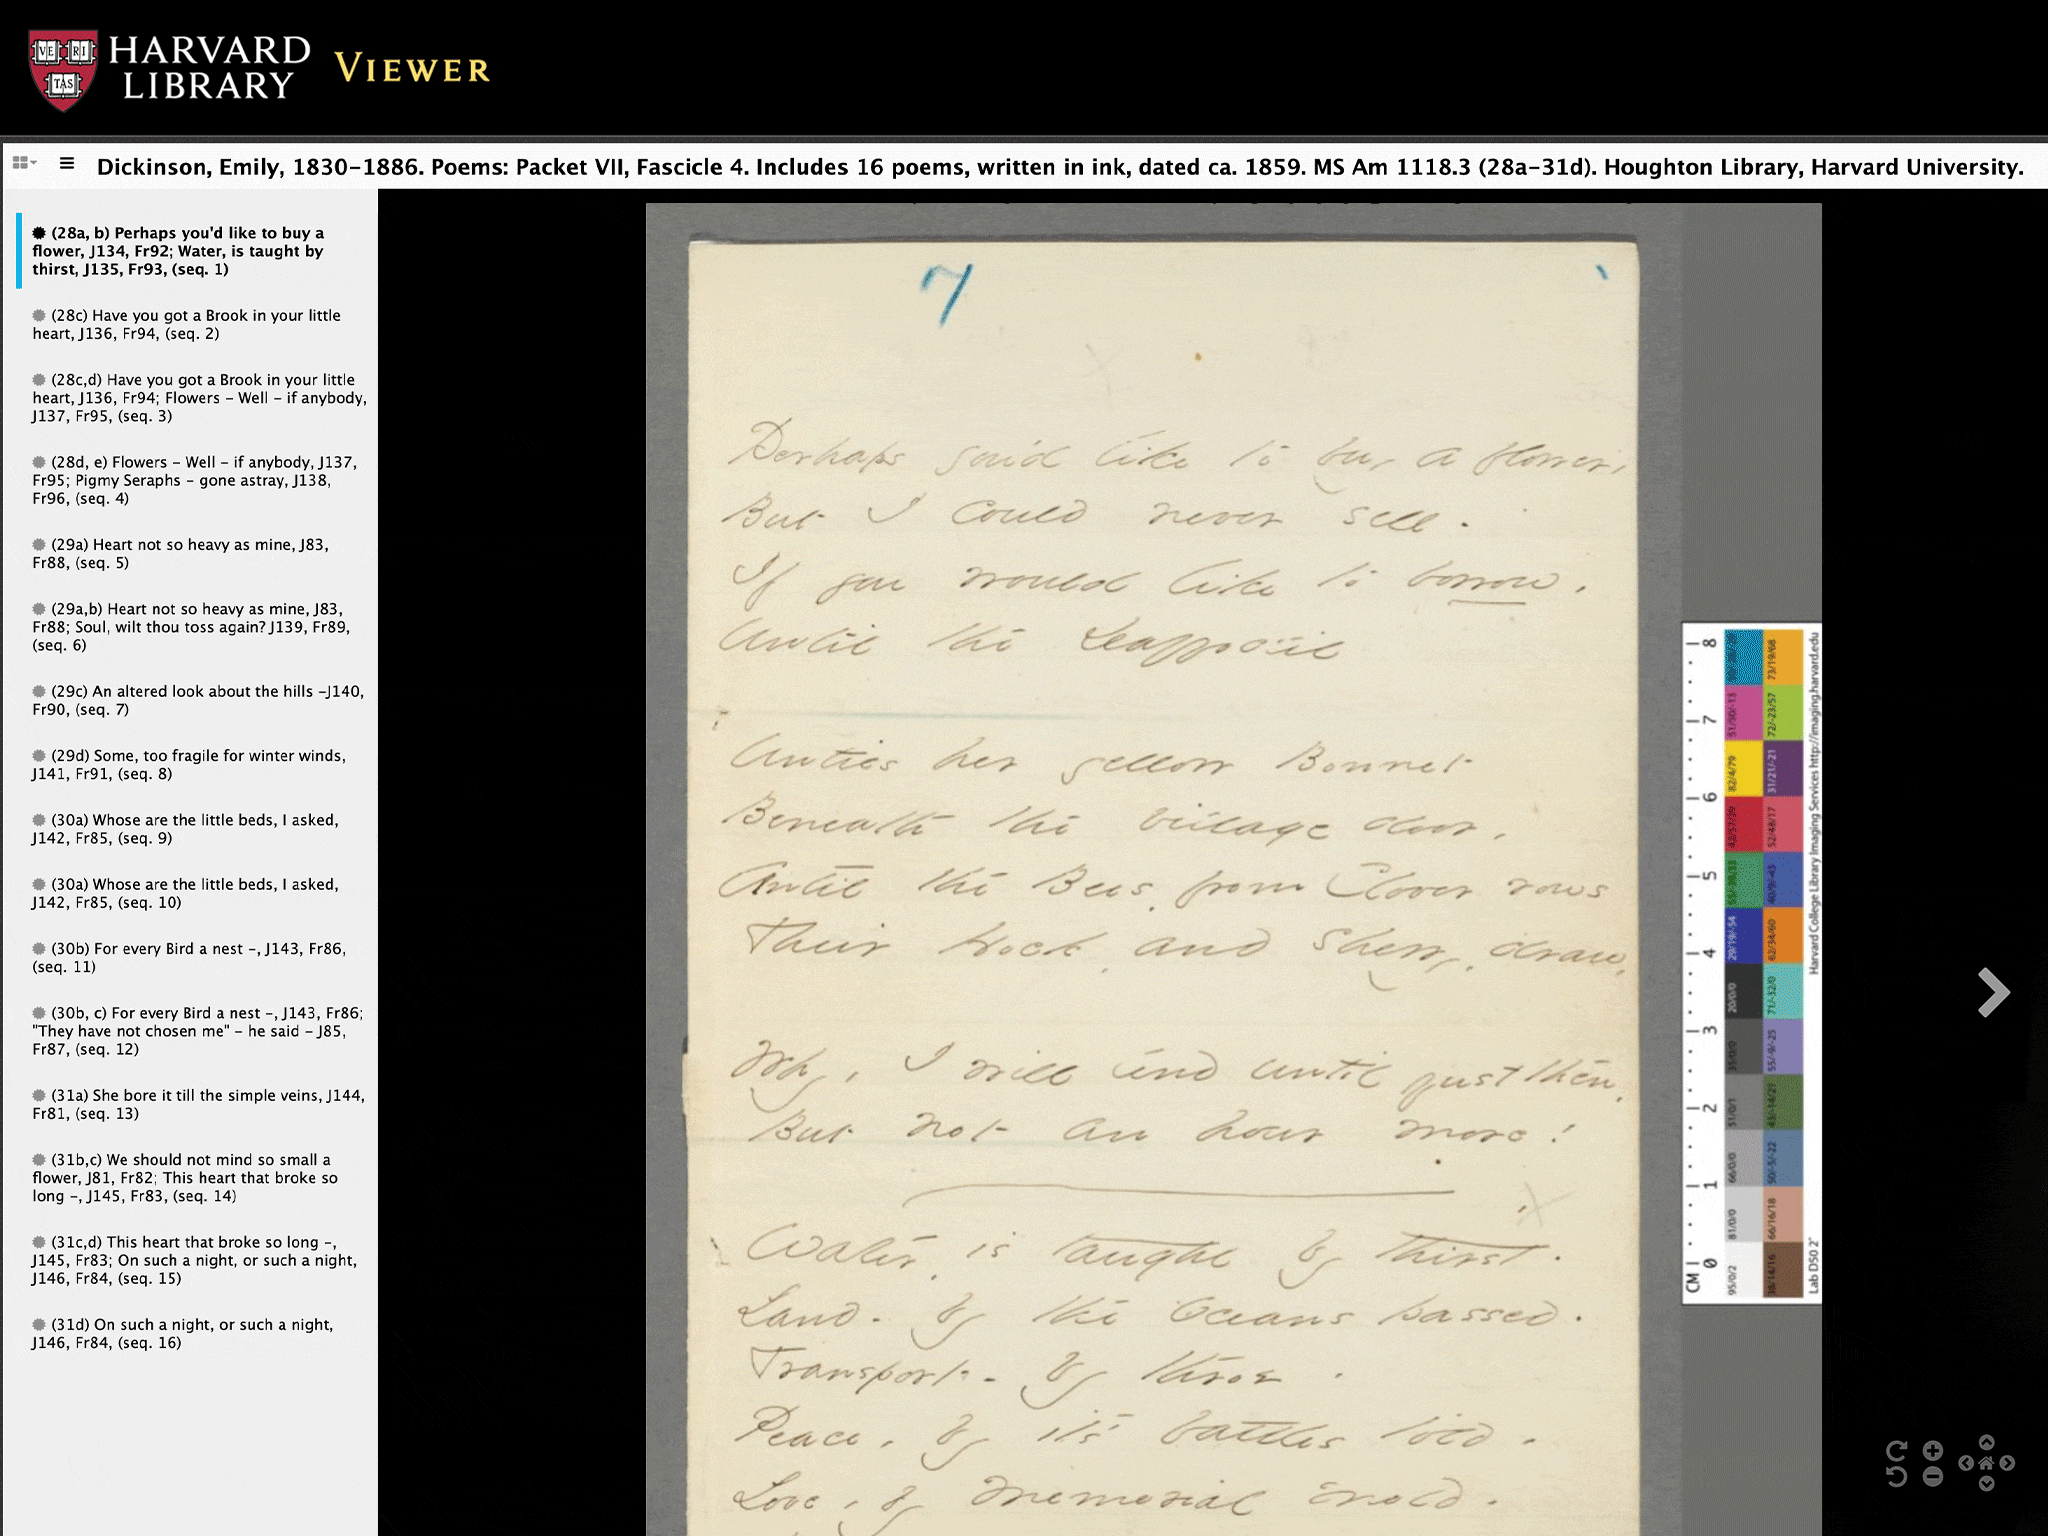 VE RI TAS
HARVARD
LIBRARY
VIEWER
Dickinson, Emily, 1830-1886. Poems: Packet VII, Fascicle 4. Includes 16 poems, written in ink, dated ca. 1859. MS Am 1118.3 (28a-31d). Houghton Library, Harvard University.
(28a, b) Perhaps you'd like to buy a
flower, J134, Fr92; Water, is taught by
thirst, J135, Fr93, (seq. 1)
(28c) Have you got a Brook in your little
heart, J136, Fr94, (seq. 2)
(28c,d) Have you got a Brook in your little
heart, J136, Fr94; Flowers - Well - if anybody,
J137, Fr95, (seq. 3)
(28d, e) Flowers - Well - if anybody, J137,
Fr95; Pigmy Seraphs - gone astray, J138,
Fr96, (seq. 4)
(29a) Heart not so heavy as mine, J83,
Fr88, (seq. 5)
(29a,b) Heart not so heavy as mine, J83,
Fr88; Soul, wilt thou toss again? J139, Fr89,
(seq. 6)
(29c) An altered look about the hills -J140,
Fr90, (seq. 7)
(29d) Some, too fragile for winter winds,
J141, Fr91, (seq. 8)
(30a) Whose are the little beds, I asked,
J142, Fr85, (seq. 9)
(30a) Whose are the little beds, I asked,
J142, Fr85, (seq. 10)
(30b) For every Bird a nest -, J143, Fr86,
(seq. 11)
(30b, c) For every Bird a nest -, J143, Fr86;
"They have not chosen me" - he said - J85,
Fr87, (seq. 12)
(31a) She bore it till the simple veins, J144,
Fr81, (seq. 13)
(31b,c) We should not mind so small a
flower, J81, Fr82; This heart that broke so
long -, J145, Fr83, (seq. 14)
(31c,d) This heart that broke so long -,
J145, Fr83; On such a night, or such a night,
J146, Fr84, (seq. 15)
(31d) On such a night, or such a night,
J146, Fr84, (seq. 16)
7
Perhaps you'd like to buy a flower,
But I could never sell -
If you would like to borrow,
Until the Daffodil
Unties her yellow Bonnet
Beneath the village door,
Until the Bees, from Clover rows
Their Hock, and Sherry, draw,
Why, I will lend until just then,
But not an hour more!
Water, is taught by thirst.
Land - by the Oceans passed.
Transport - by throe -
Peace, by it's battles told -
Love, by memorial mold -
CM 0 1 2 3 4 5 6 7 8
Harvard College Library Imaging Services http://imaging.harvard.edu
Lab D50 2°